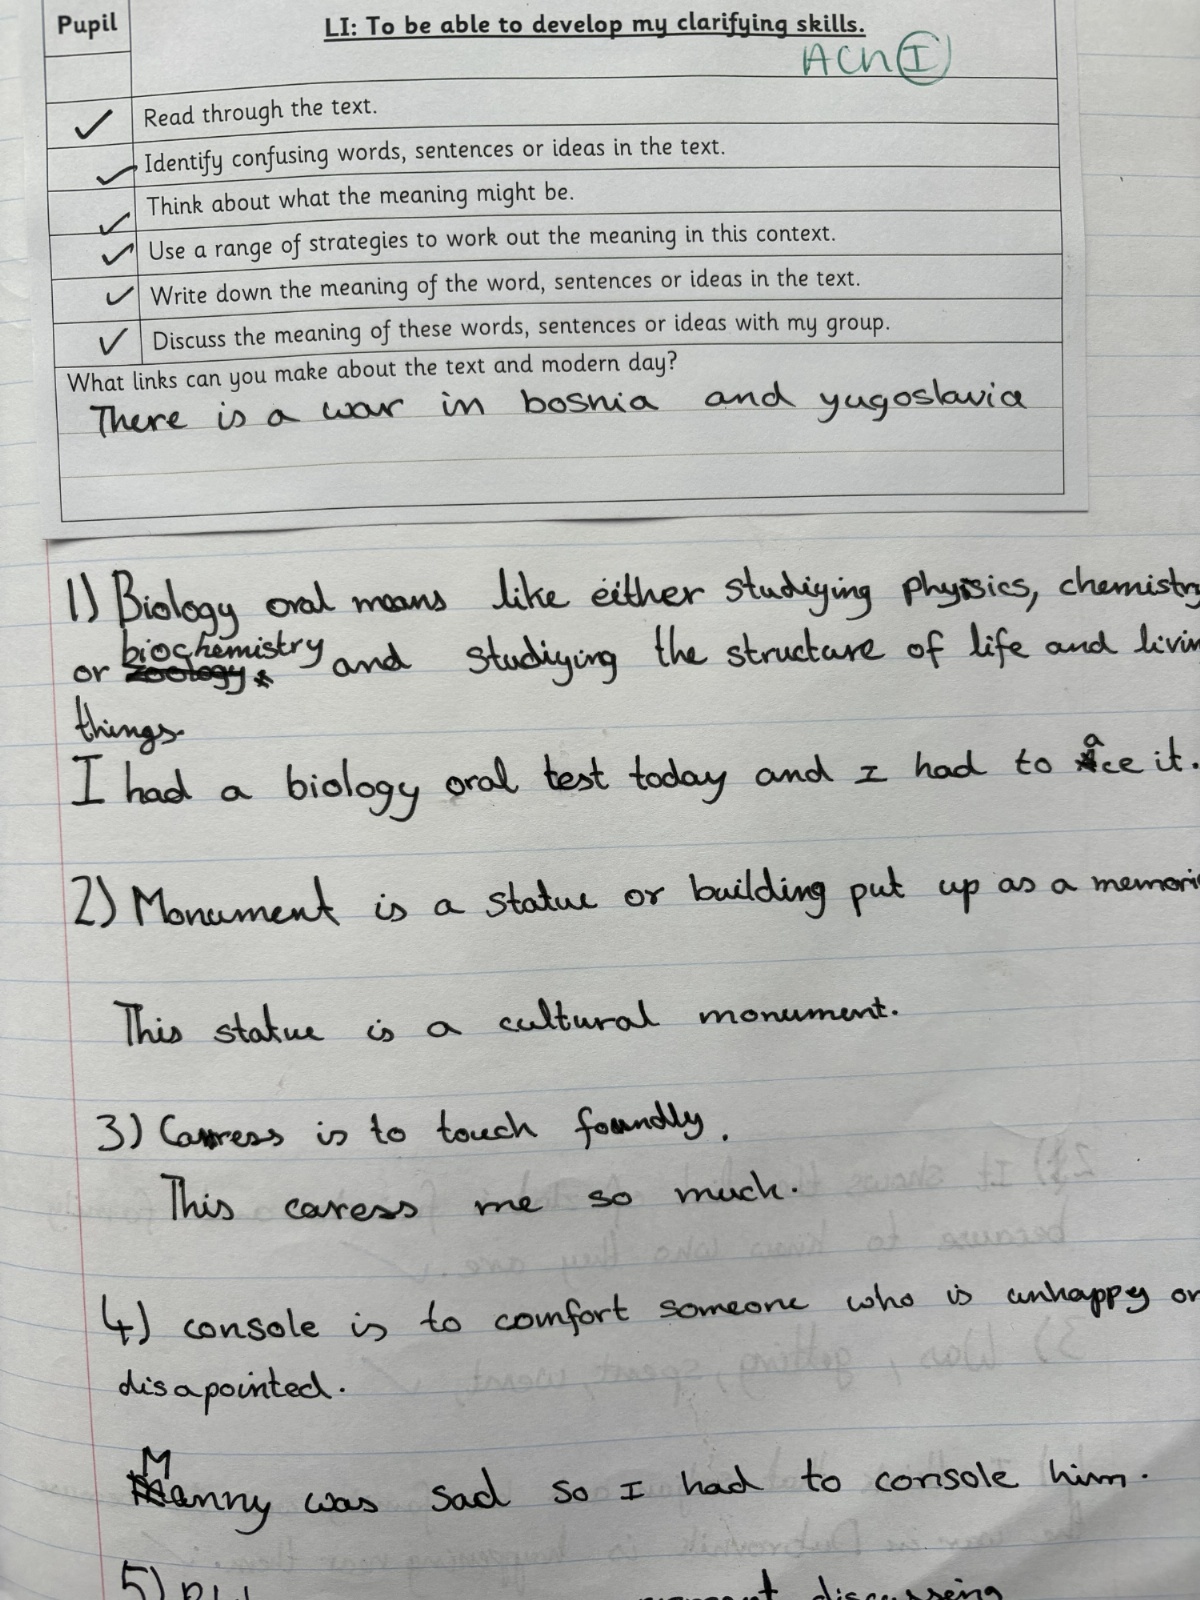 Pupil
LI: To be able to develop my clarifying skills.
ACh I
Read through the text.
Identify confusing words, sentences or ideas in the text.
Think about what the meaning might be.
Use a range of strategies to work out the meaning in this context.
Write down the meaning of the word, sentences or ideas in the text.
Discuss the meaning of these words, sentences or ideas with my group.
What links can you make about the text and modern day?
There is a war in bosnia and yugoslavia
1) Biology oral means like either studiying physics, chemistry
or biochemistry and studiying the structure of life and livin
things.
I had a biology oral test today and I had to ace it.
2) Monument is a statue or building put up as a memori
This statue is a cultural monument.
3) Caress is to touch foundly.
This caress me so much.
4) console is to comfort someone who is unhappy or
disapointed.
Manny was sad so I had to console him.
5) discussing